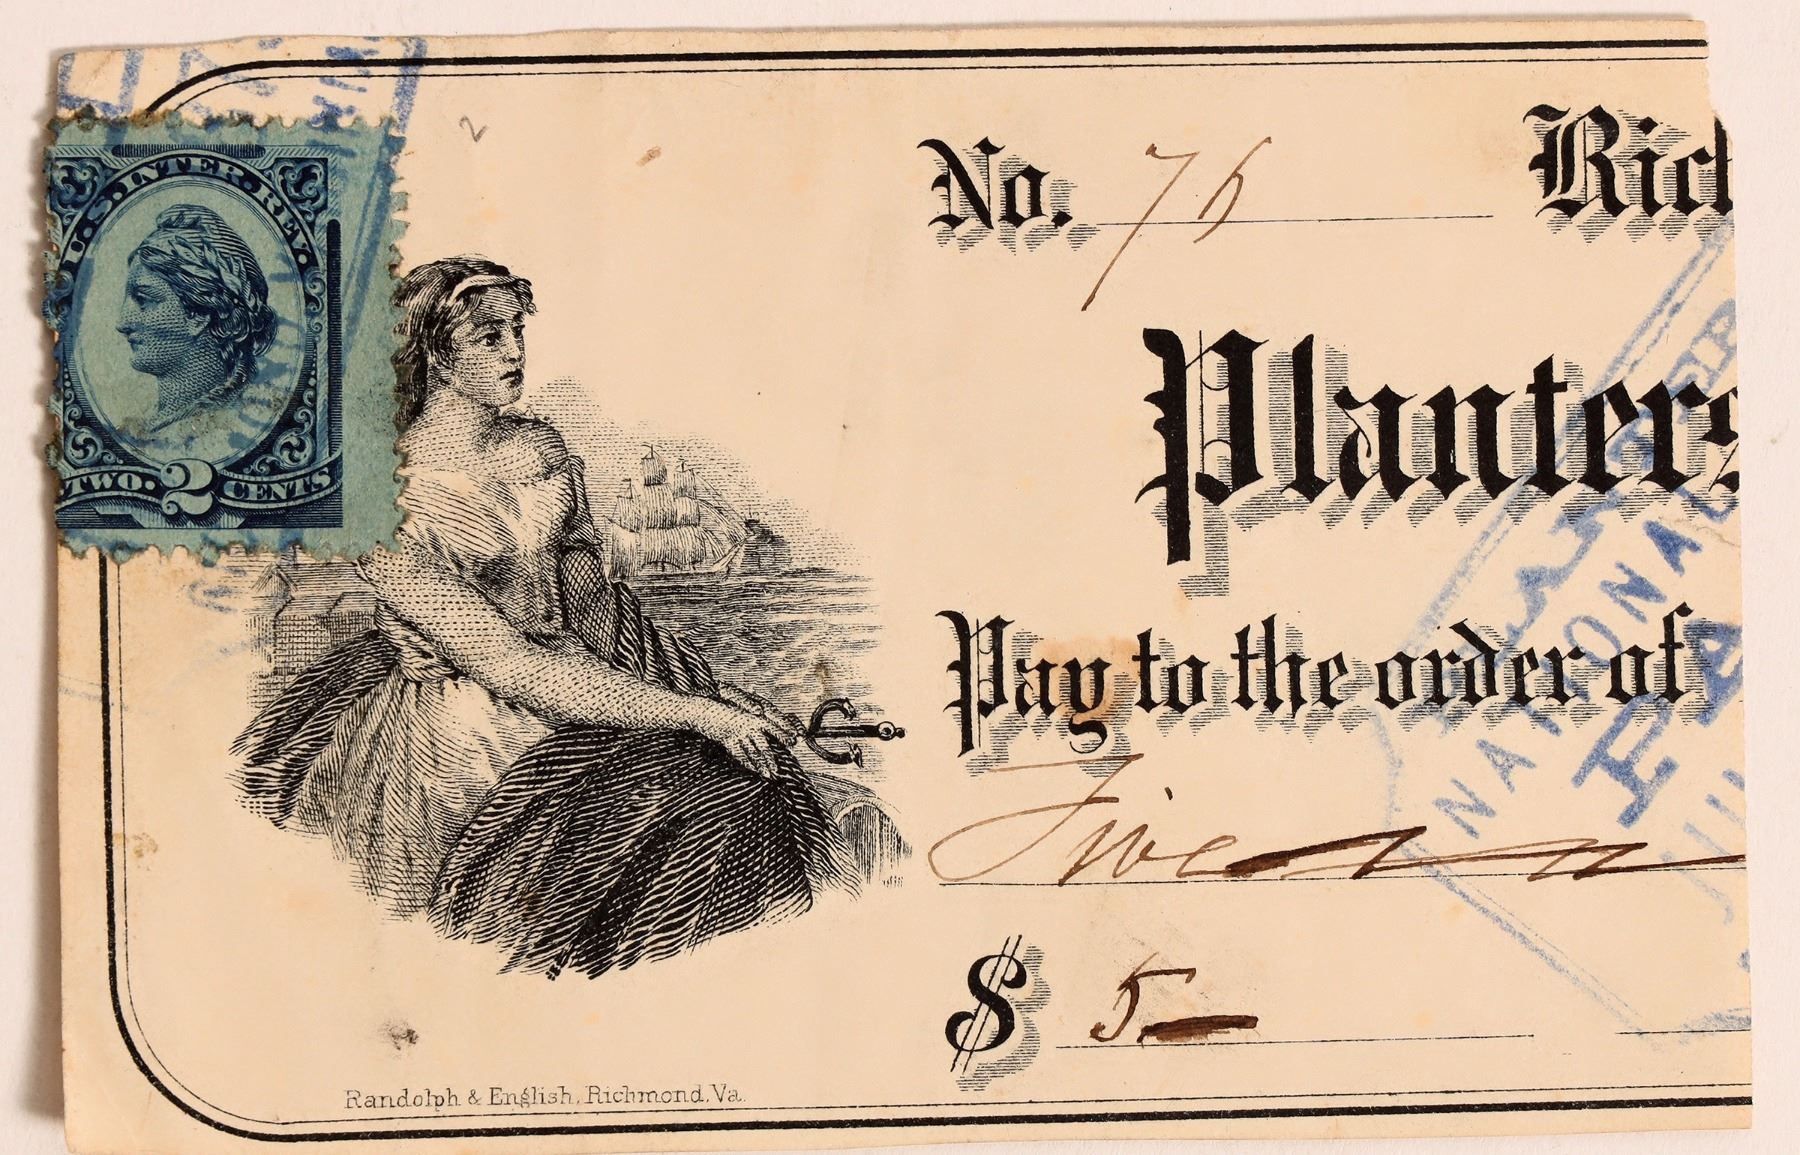 U.S. INTER. REV.
TWO. 2 CENTS
2
No. 76 Rich
Planters
Pay to the order of
NATIONAL
PA
Five
$ 5
Randolph & English, Richmond, Va.